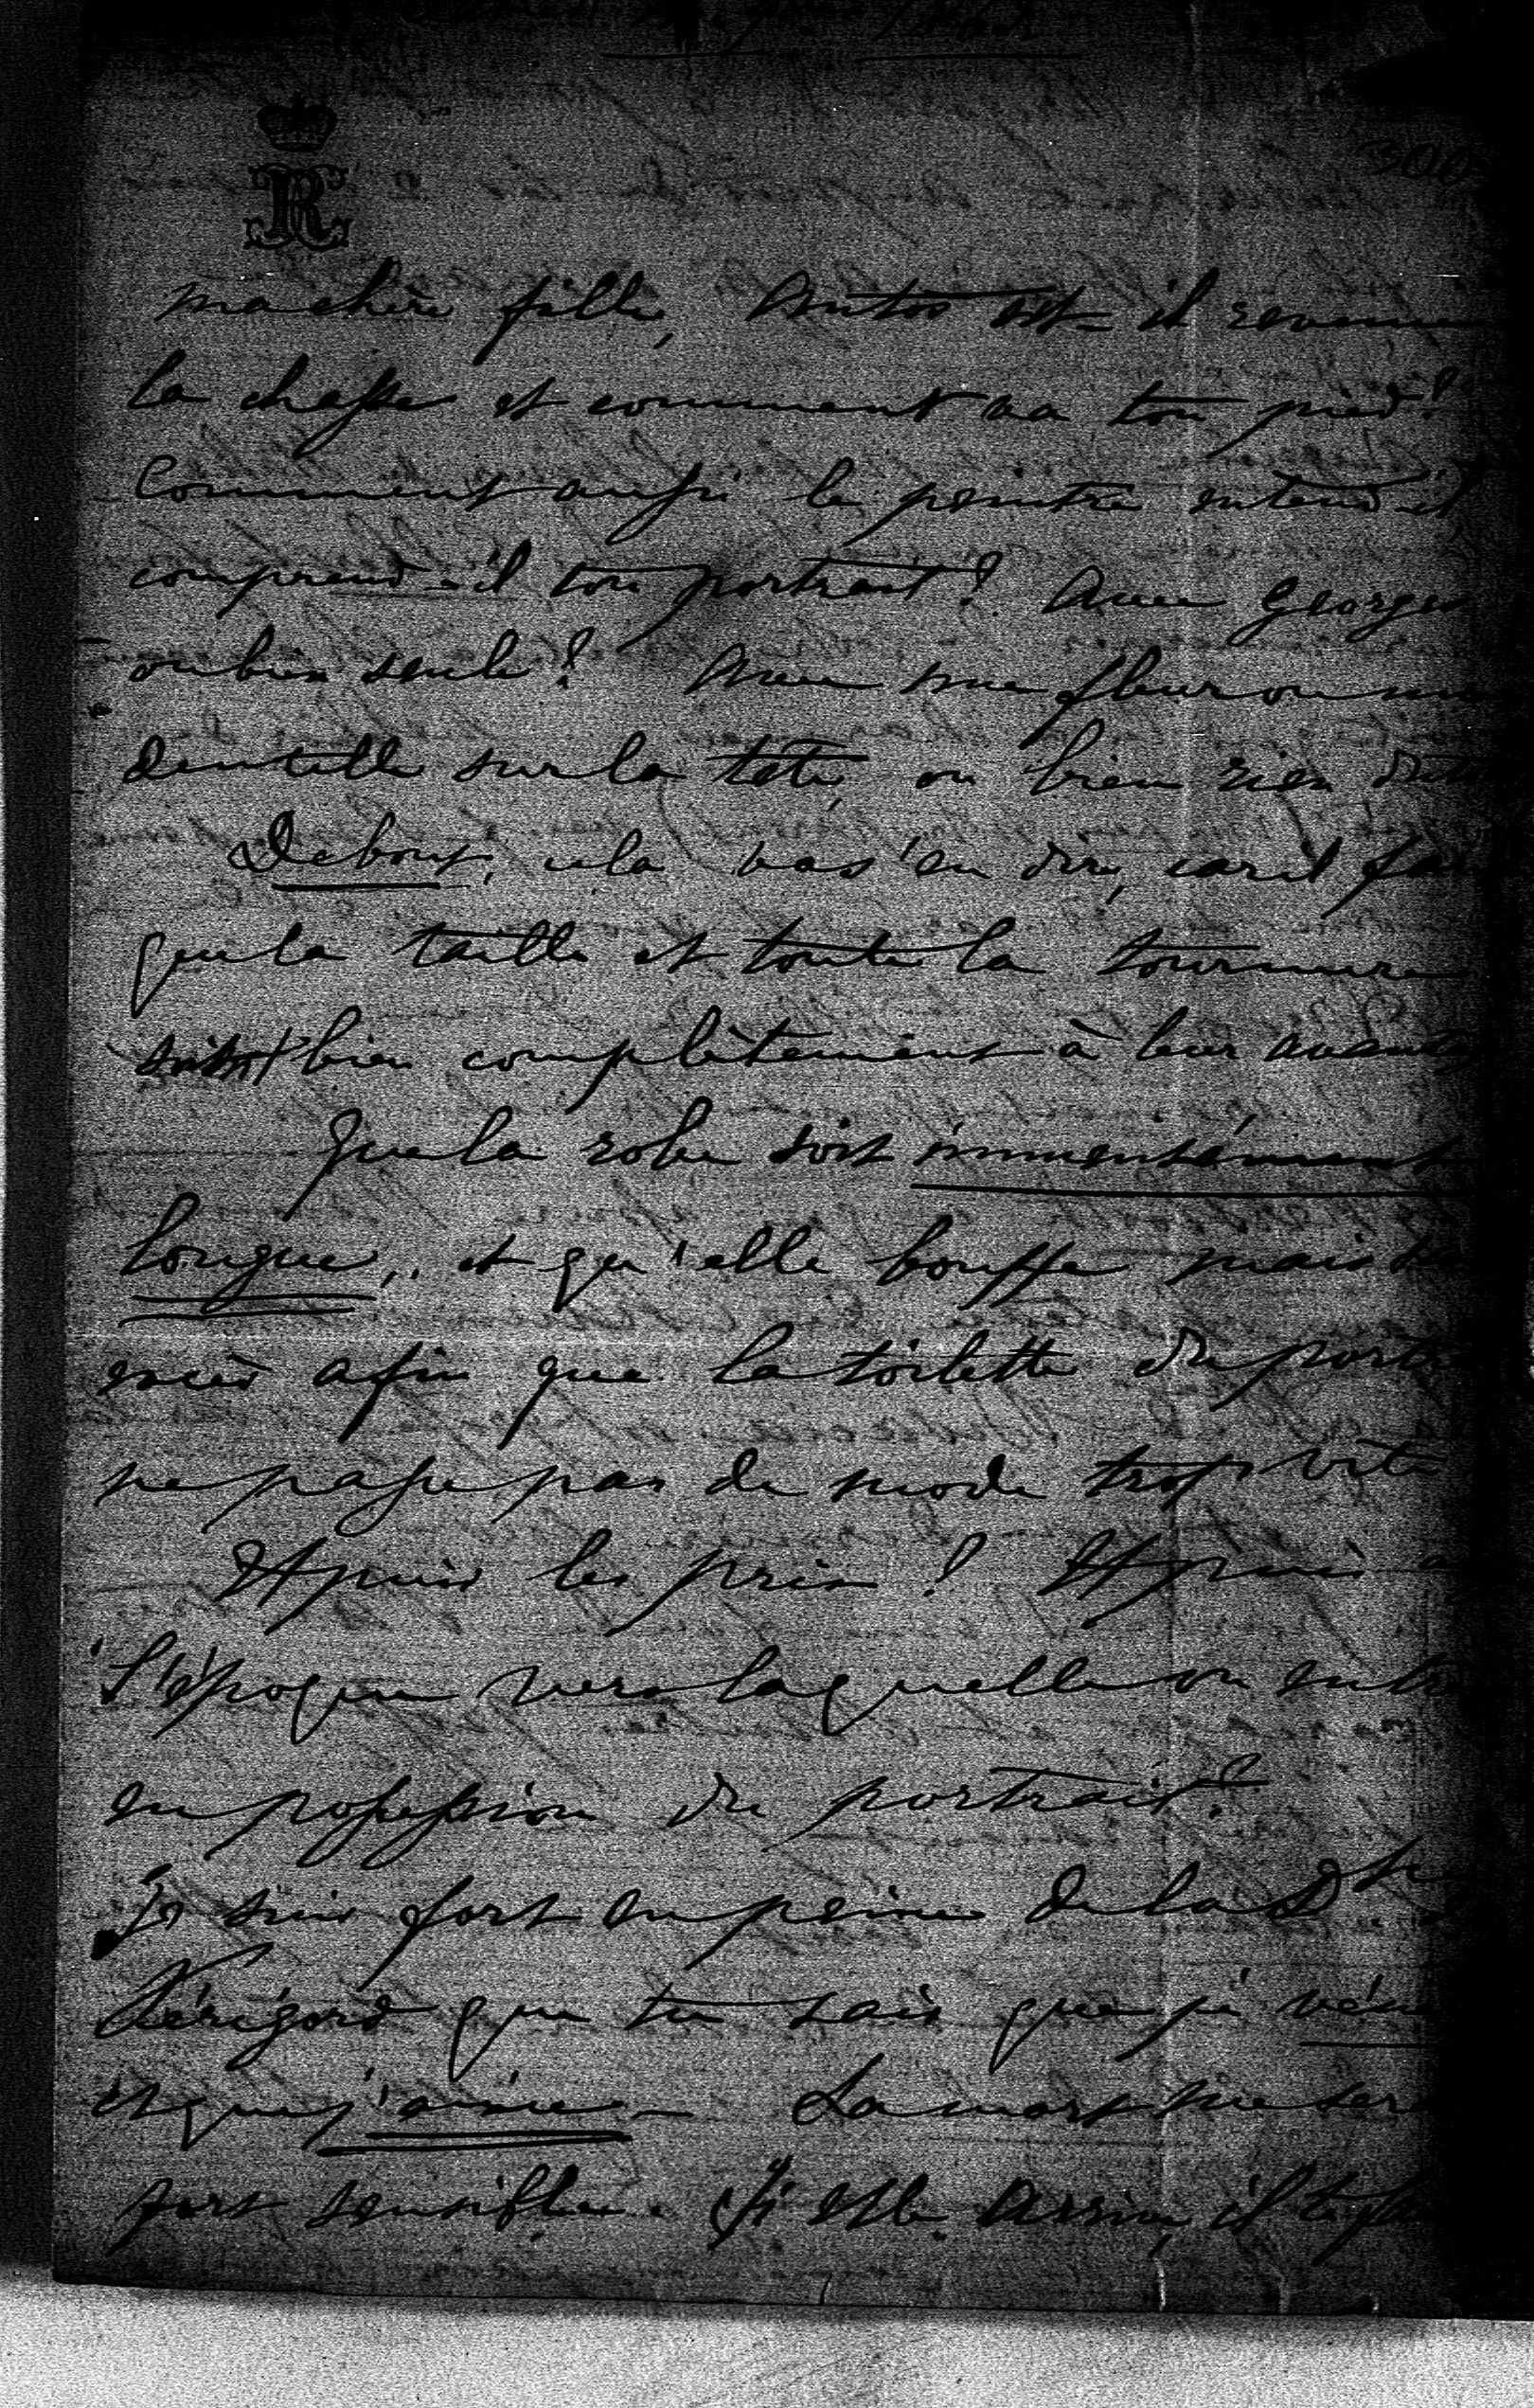 300
R
ma chère fille, Antos est-il revenu
la chasse et comment va ton pied?
Comment aussi le peintre entend-il,
comprend-il ton portrait? Avec Georges
ou bien seule? Avec une fleur ou une
dentelle sur la tête, ou bien rien du
Debout, cela vas s'en dire, car il
que la taille et toute la tournure
soient bien complètement à leur
Que la robe soit immensément
longue, et qu'elle bouffe mais
afin que la toilette du
ne passe pas de mode trop vite
Et puis les prix! Et puis
l'époque vers laquelle on
en possession du portrait?
Je suis fort en peine de la D
Périgord que tu sais que je
et que j'aime – La mort me
fort sensible. Si elle arrive, il te